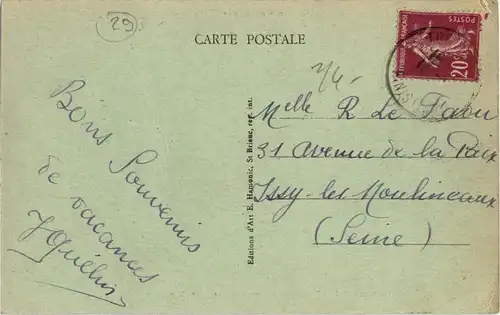 29
CARTE POSTALE
POSTES
20
Bons Souvenirs
de vacances
Melle R Le Faou
31 avenue de la Paix
Issy-les-Moulineaux
(Seine)
Editions d'Art E. Hamonic, St Brieuc, rep. int.